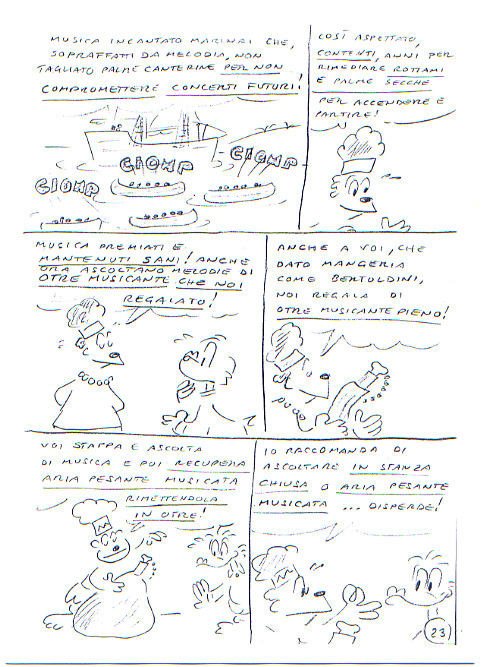 MUSICA INCANTATO MARINAI CHE,
SOPRAFFATTI DA MELODIA, NON
TAGLIATO PALME CANTERINE PER NON
COMPROMETTERE CONCERTI FUTURI!
COSÌ ASPETTATO,
CONTENTI, ANNI PER
RIMEDIARE ROTTAMI
E PALME SECCHE
PER ACCENDERE E
PARTIRE!
CIOMP
CIOMP
CIOMP
MUSICA PREMIATI E
MANTENUTI SANI! ANCHE
ORA ASCOLTANO MELODIE DI
OTRE MUSICANTE CHE NOI
REGALATO!
ANCHE A VOI, CHE
DATO MANGERIA
COME BERTOLDINI,
NOI REGALA DI
OTRE MUSICANTE PIENO!
VOI STAPPA E ASCOLTA
DI MUSICA E POI RECUPERA
ARIA PESANTE MUSICATA
RIMETTENDOLA
IN OTRE!
IO RACCOMANDA DI
ASCOLTARE IN STANZA
CHIUSA O ARIA PESANTE
MUSICATA ... DISPERDE!
23